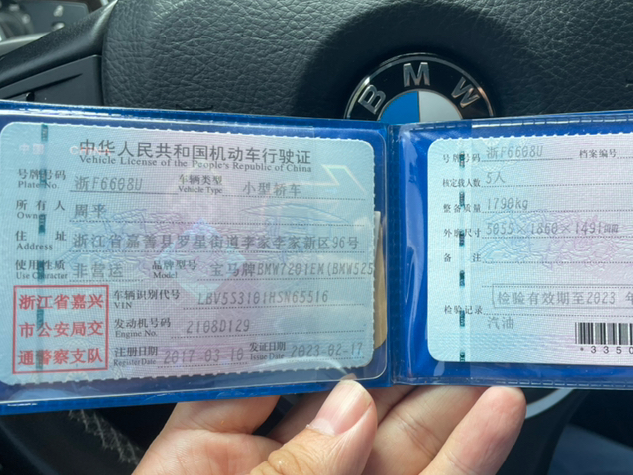 BMW
中华人民共和国机动车行驶证
Vehicle License of the People's Republic of China
号牌号码 浙F6608U 车辆类型 小型轿车
Plate No. Vehicle Type
所有人 周平
Owner
住址 浙江省嘉善县罗星街道李家李家新区96号
Address
使用性质 非营运 品牌型号 宝马牌BMW7201EM(BMW525
Use Character Model
浙江省嘉兴
市公安局交
通警察支队
车辆识别代号 LBV5S3101HSN65516
VIN
发动机号码 2108D129
Engine No.
注册日期 2017-03-10 发证日期 2023-02-17
Register Date Issue Date
号牌号码 浙F6608U 档案编号
核定载人数 5人
整备质量 1790kg
外廓尺寸 5055×1860×1491
备注
检验有效期至2023年
检验记录
汽油
*3350